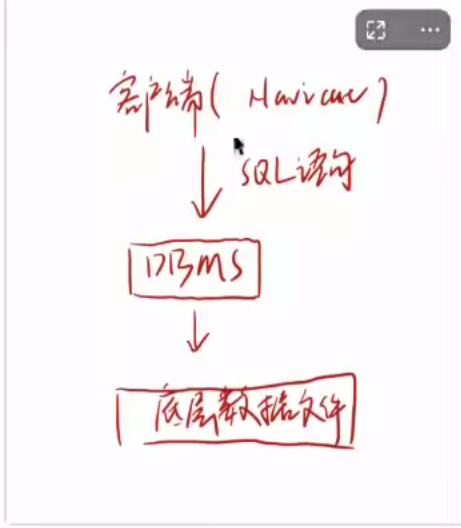 客户端( Navicat )
SQL语句
DBMS
底层数据文件